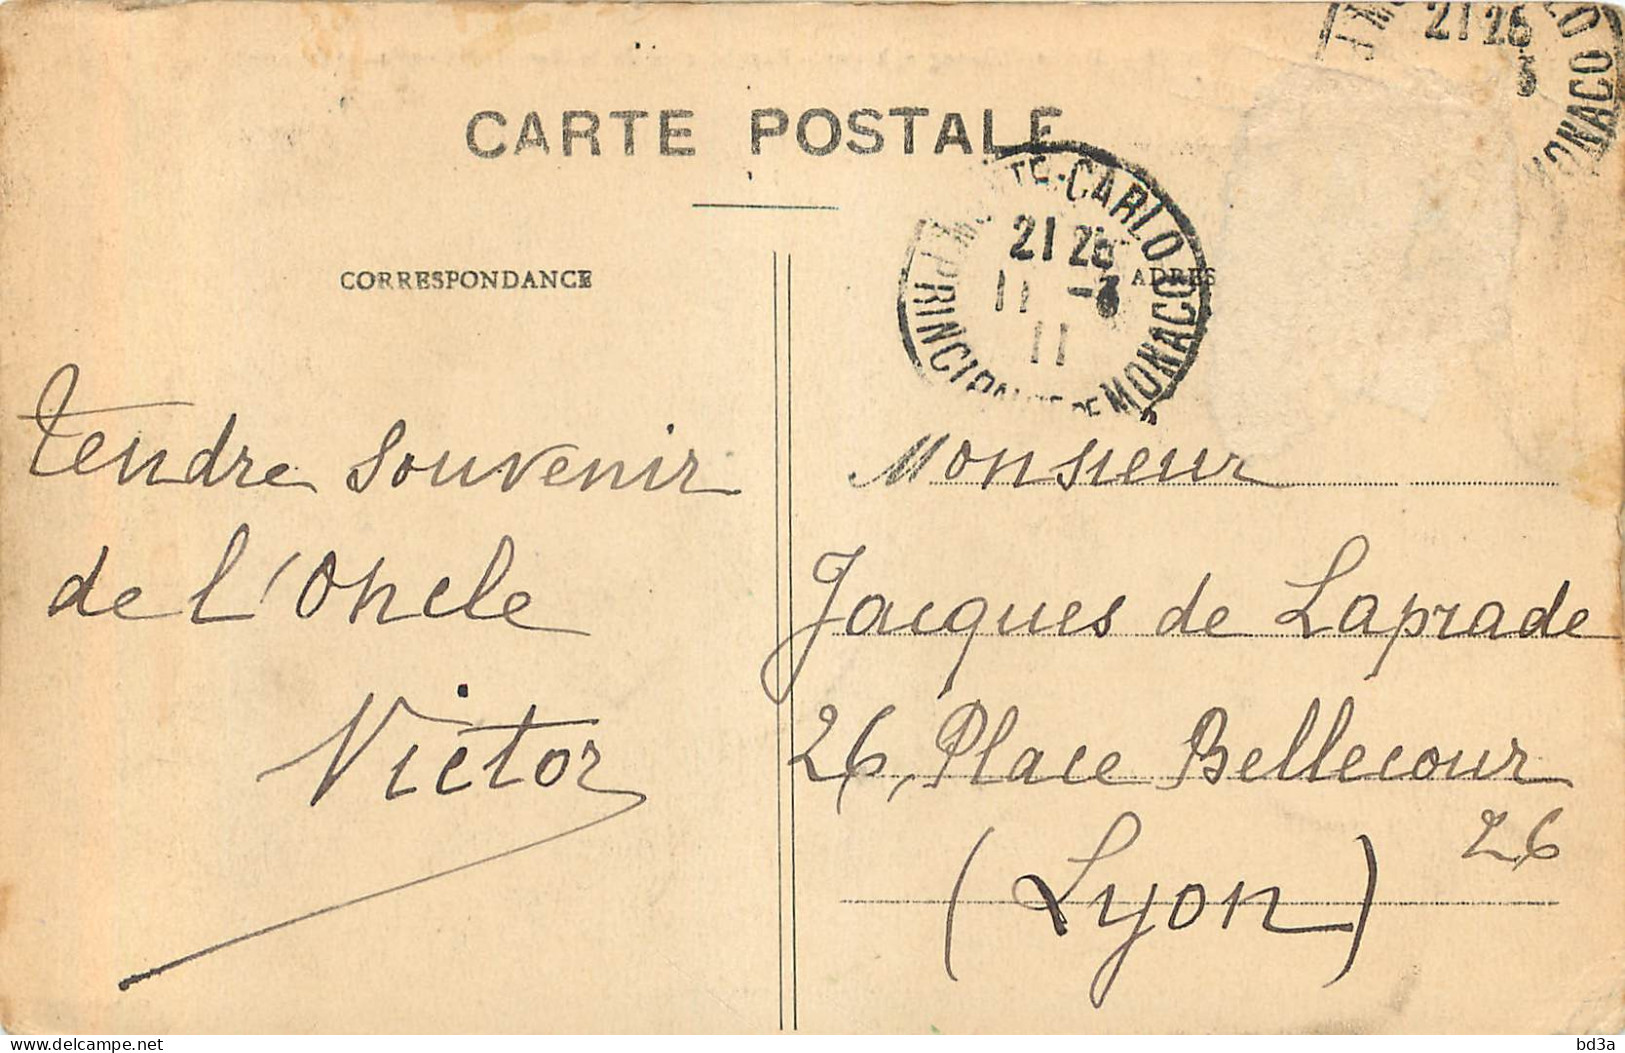 CARTE POSTALE
CORRESPONDANCE
Tendre souvenir
de l'Oncle
Victor
MONTE-CARLO
21 25
11 -3
11
PRINCIPAUTÉ DE MONACO
21 25
3
MONACO
ADRES
Monsieur
Jacques de Laprade
26, Place Bellecour
26
(Lyon)
bd3a